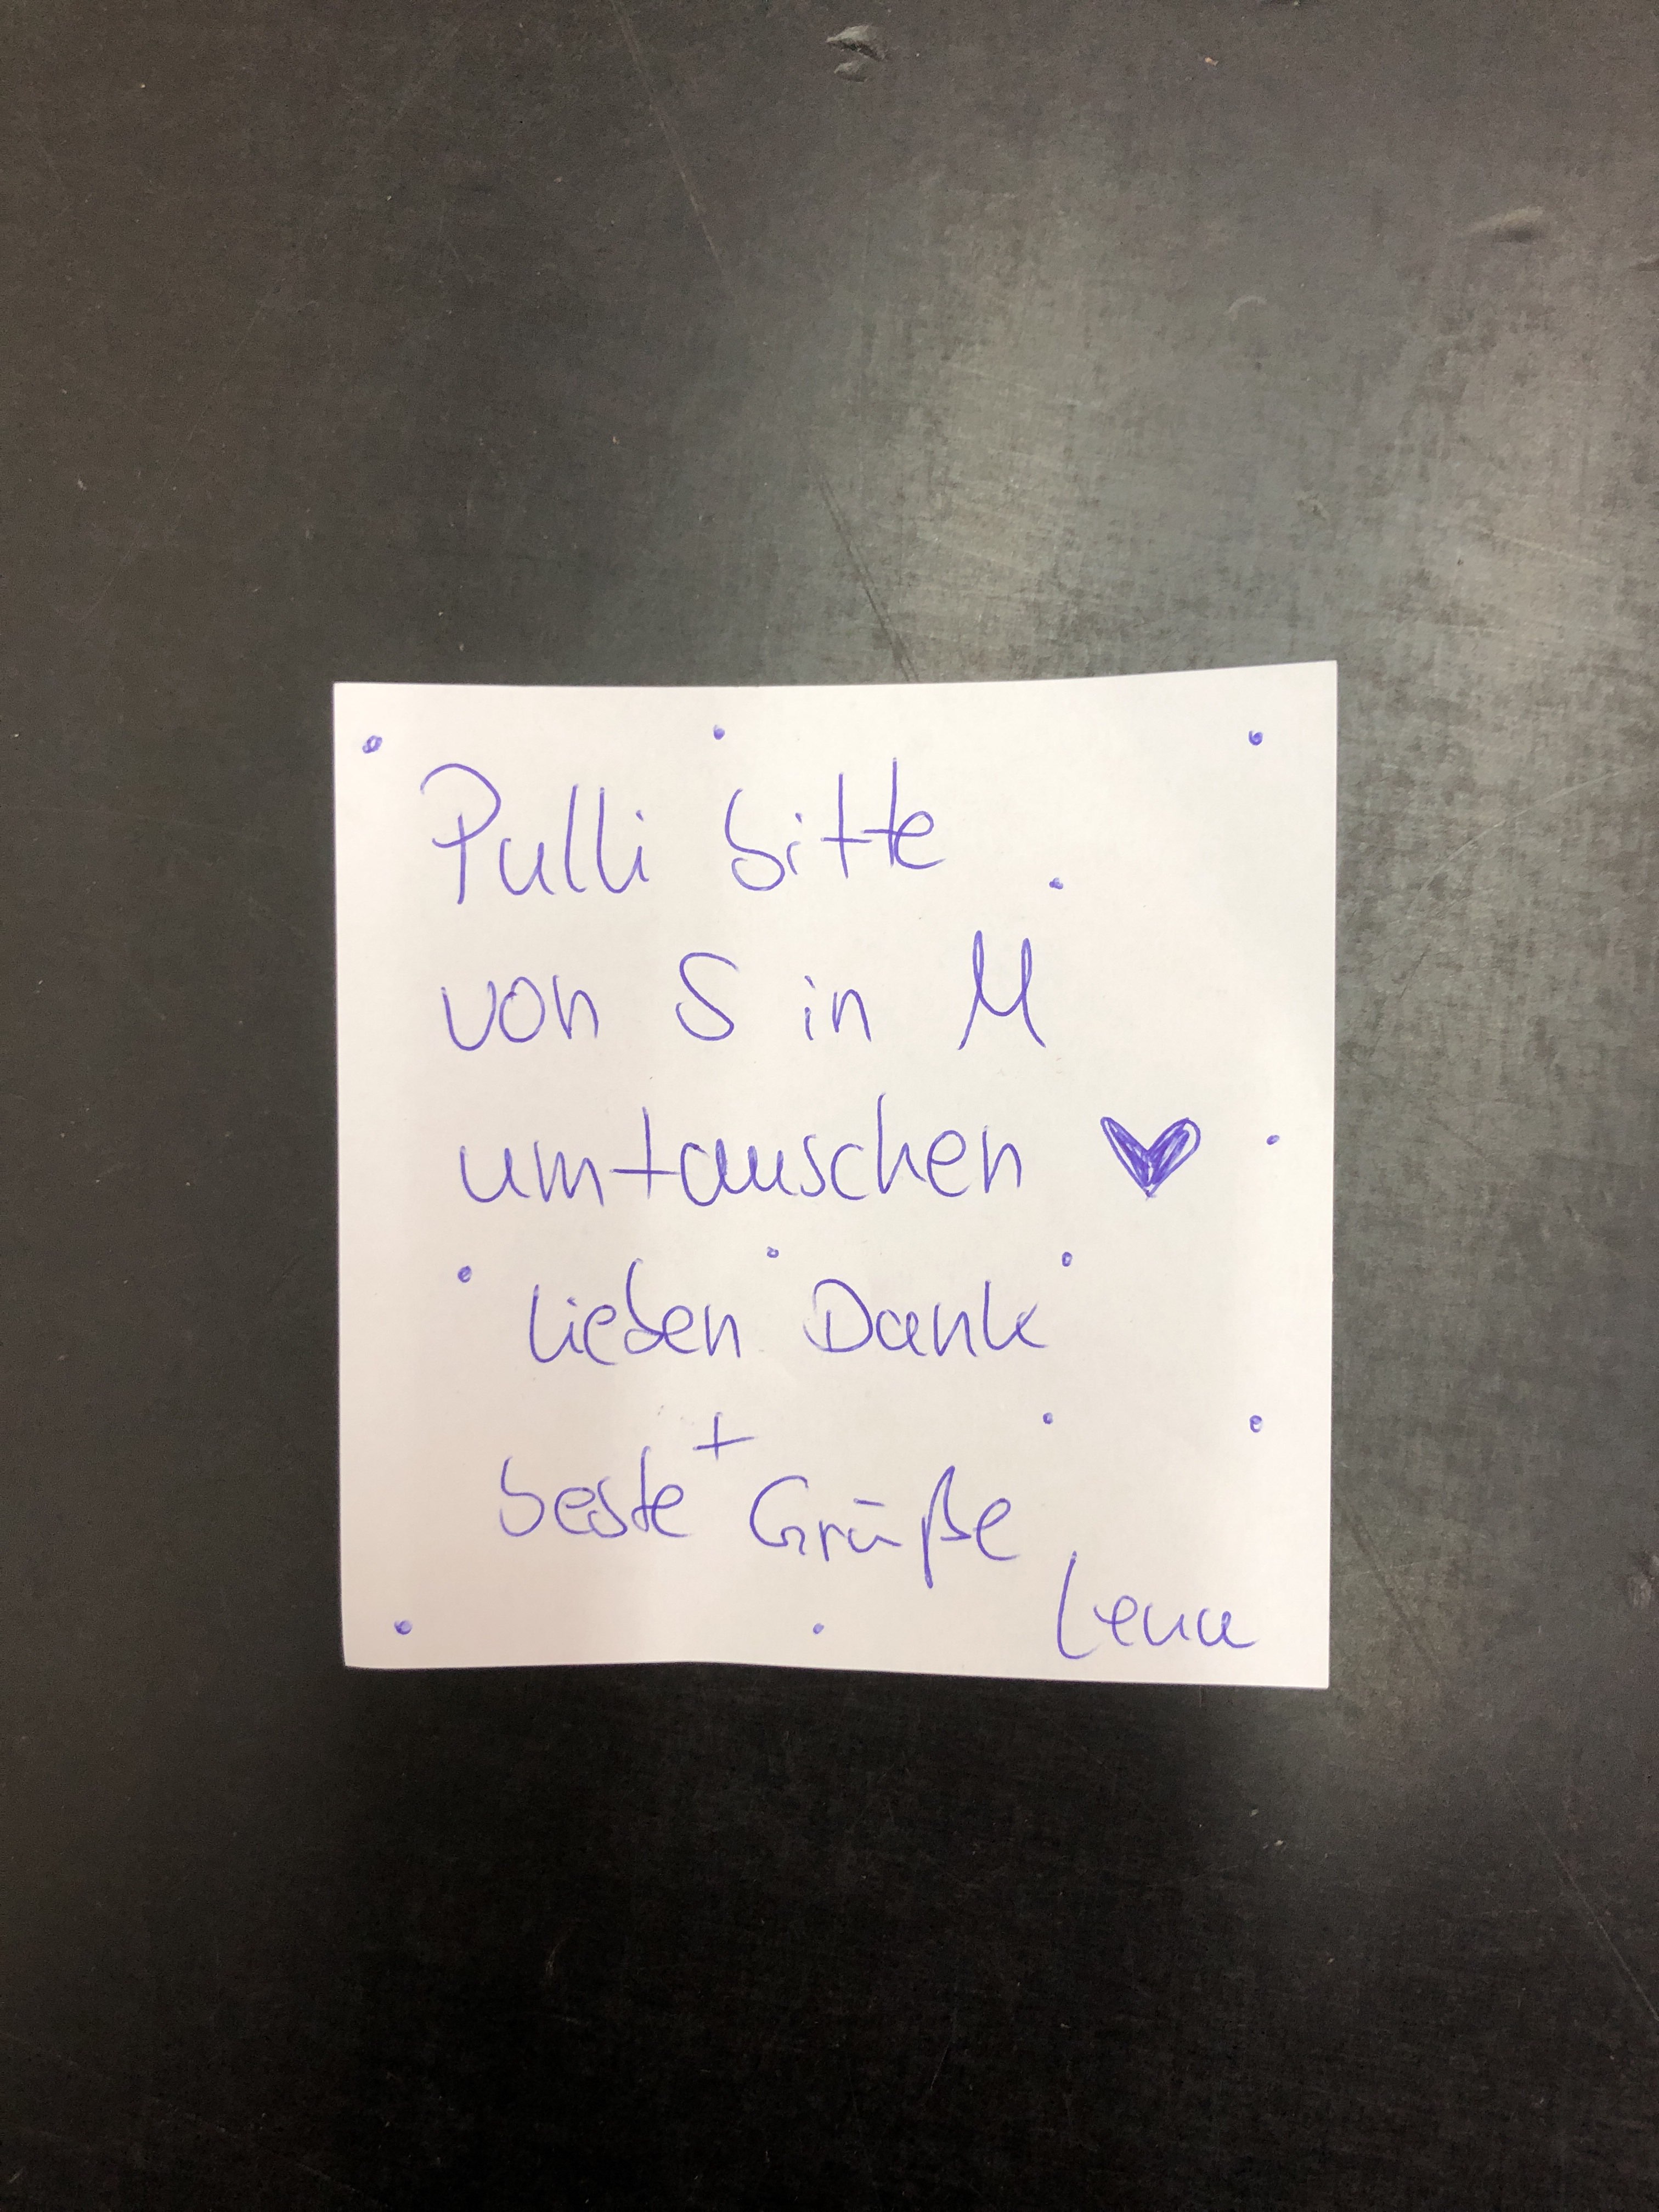 Pulli bitte
von S in M
umtauschen ♥
lieben Dank
+
beste Grüße
Lena